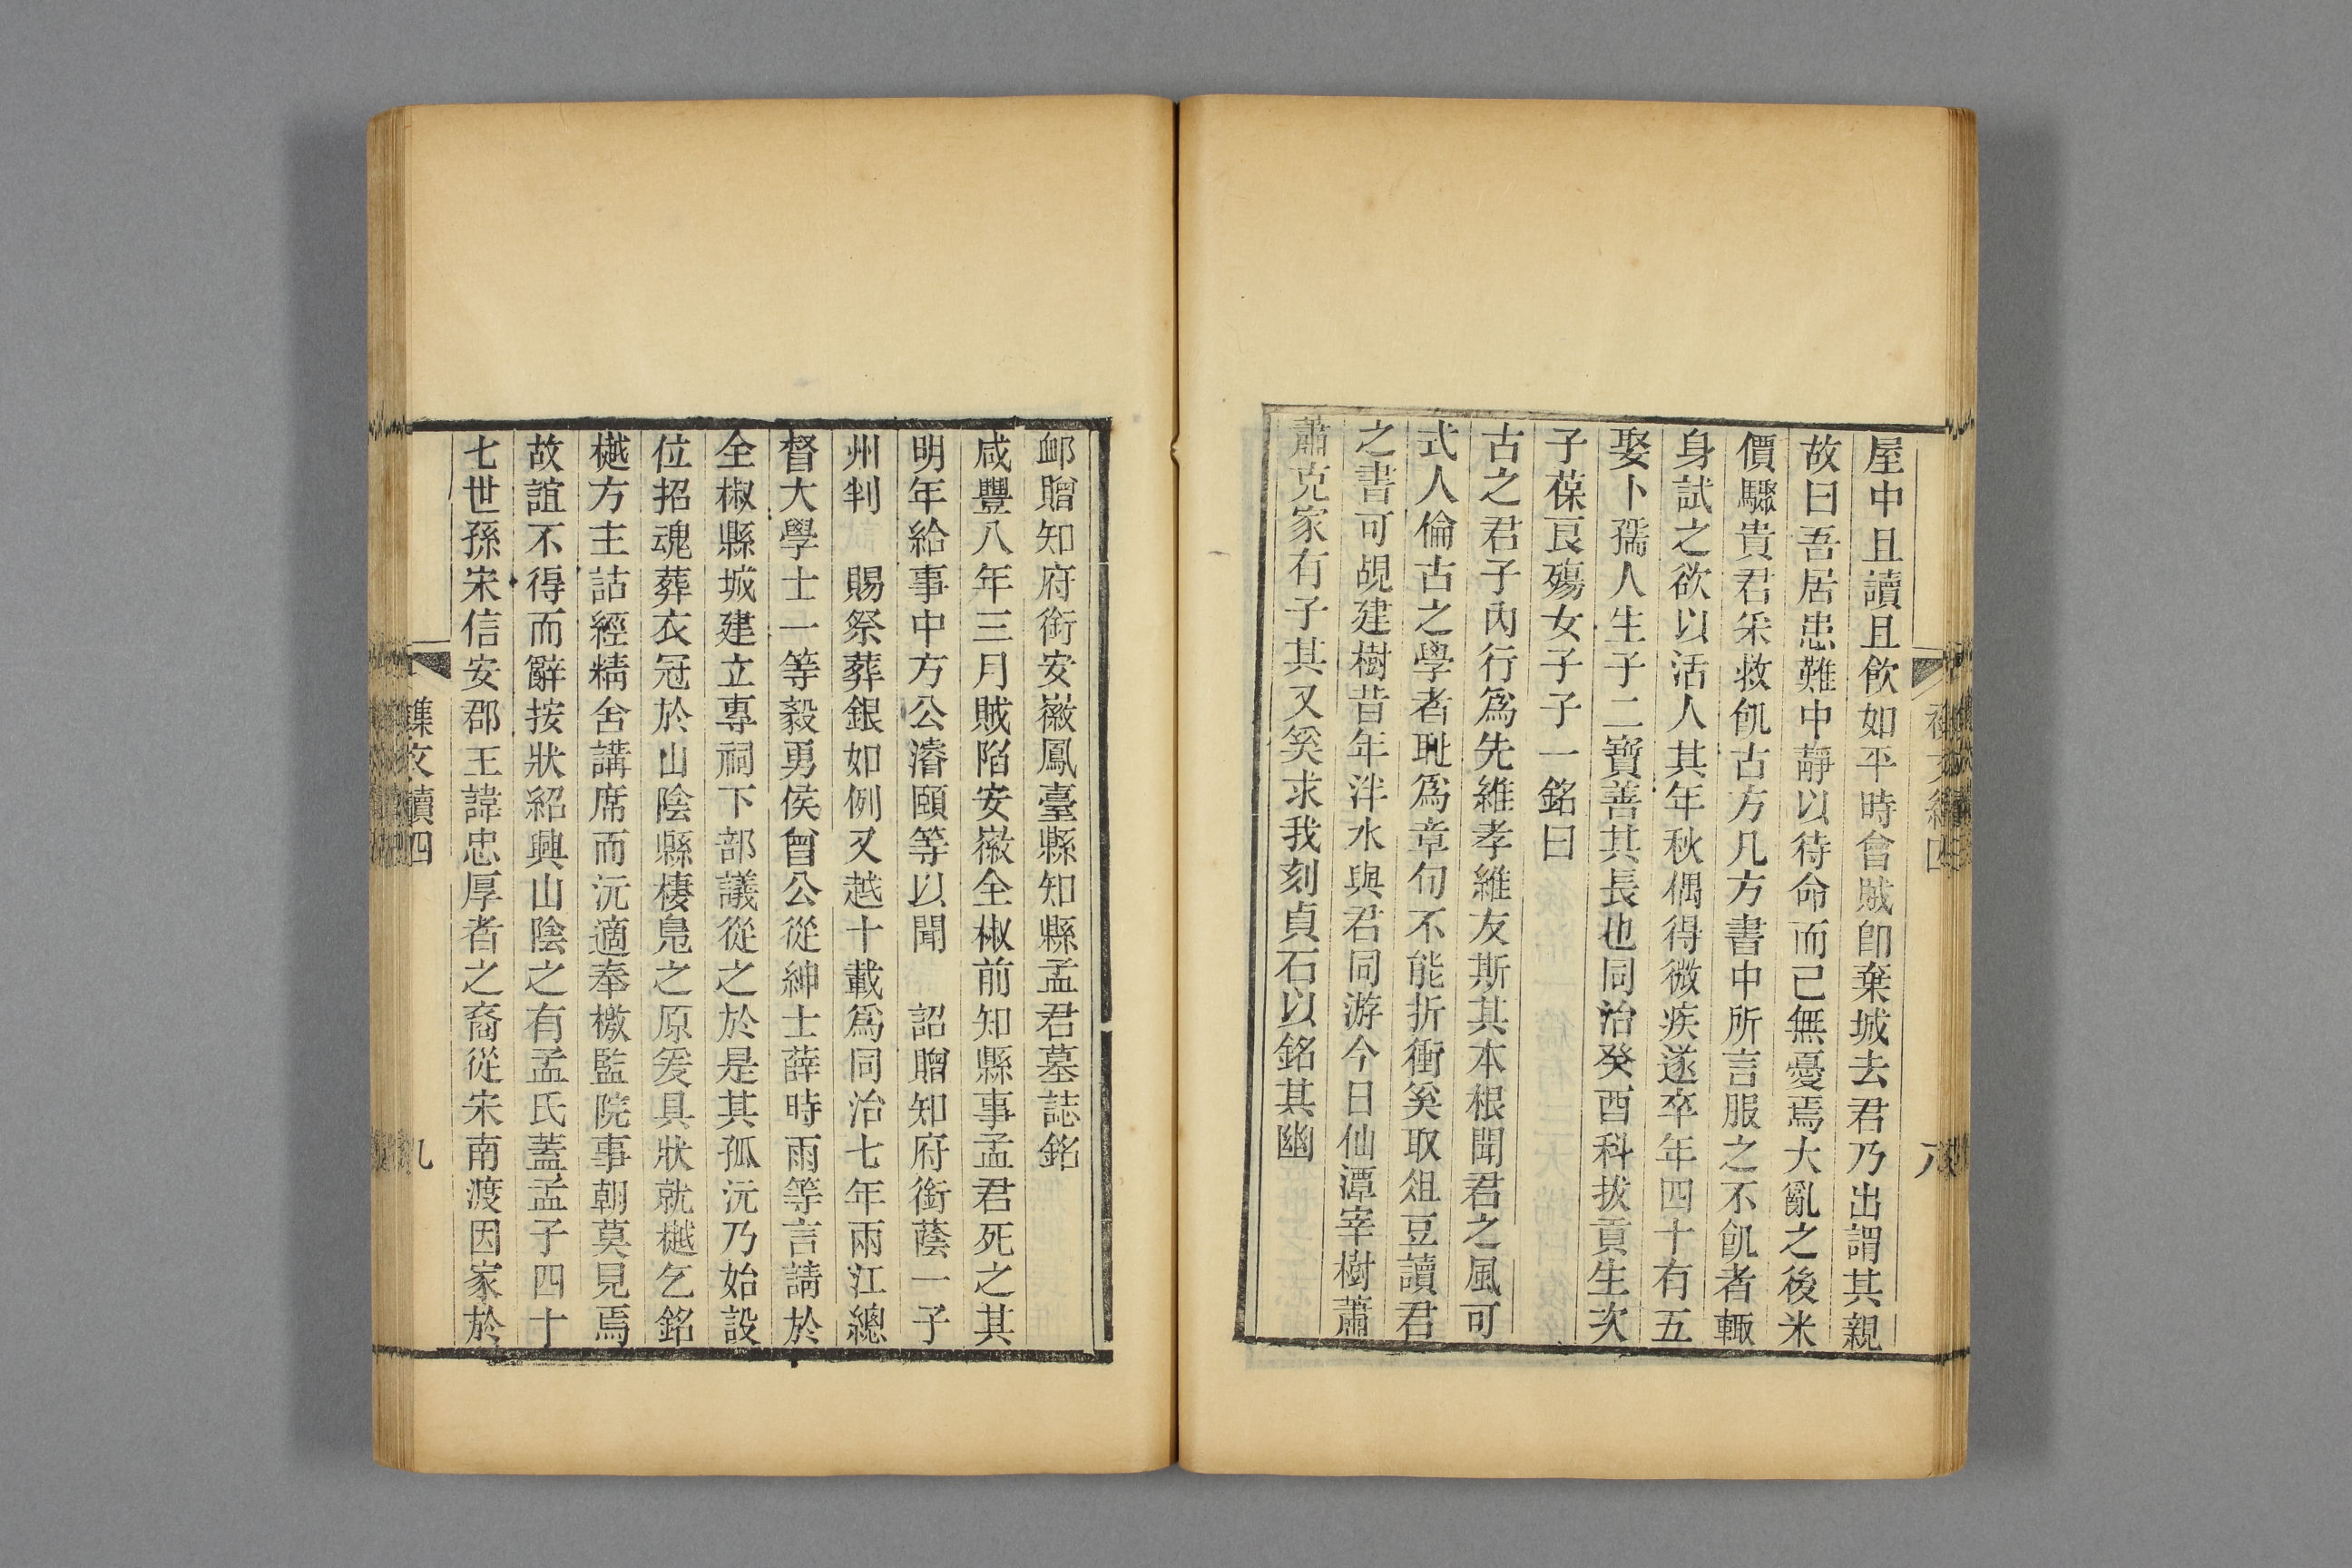 屋中且讀且飮如平時會賊卽棄城去君乃出謂其親
故曰吾居患難中靜以待命而已無憂焉大亂之後米
價驟貴君采救飢古方凡方書中所言服之不飢者輒
身試之欲以活人其年秋偶得微疾遂卒年四十有五
娶卜孺人生子二寶善其長也同治癸酉科拔貢生次
子葆艮殤女子子一銘曰
古之君子內行爲先維孝維友斯其本根聞君之風可
式人倫古之學者恥爲章句不能折衝奚取俎豆讀君
之書可覘建樹昔年泮水與君同游今日仙潭宰樹蕭
蕭克家有子其又奚求我刻貞石以銘其幽
八
卹贈知府銜安徽鳳臺縣知縣孟君墓誌銘
咸豐八年三月賊陷安徽全椒前知縣事孟君死之其
明年給事中方公濬頤等以聞 詔贈知府銜蔭一子
州判 賜祭葬銀如例又越十載爲同治七年兩江總
督大學士一等毅勇侯曾公從紳士薛時雨等言請於
全椒縣城建立專祠下部議從之於是其孤沅乃始設
位招魂葬衣冠於山陰縣棲鳧之原爰具狀就樾乞銘
樾方主詁經精舍講席而沅適奉檄監院事朝莫見焉
故誼不得而辭按狀紹興山陰之有孟氏蓋孟子四十
七世孫宋信安郡王諱忠厚者之裔從宋南渡因家於
襍文續四
九